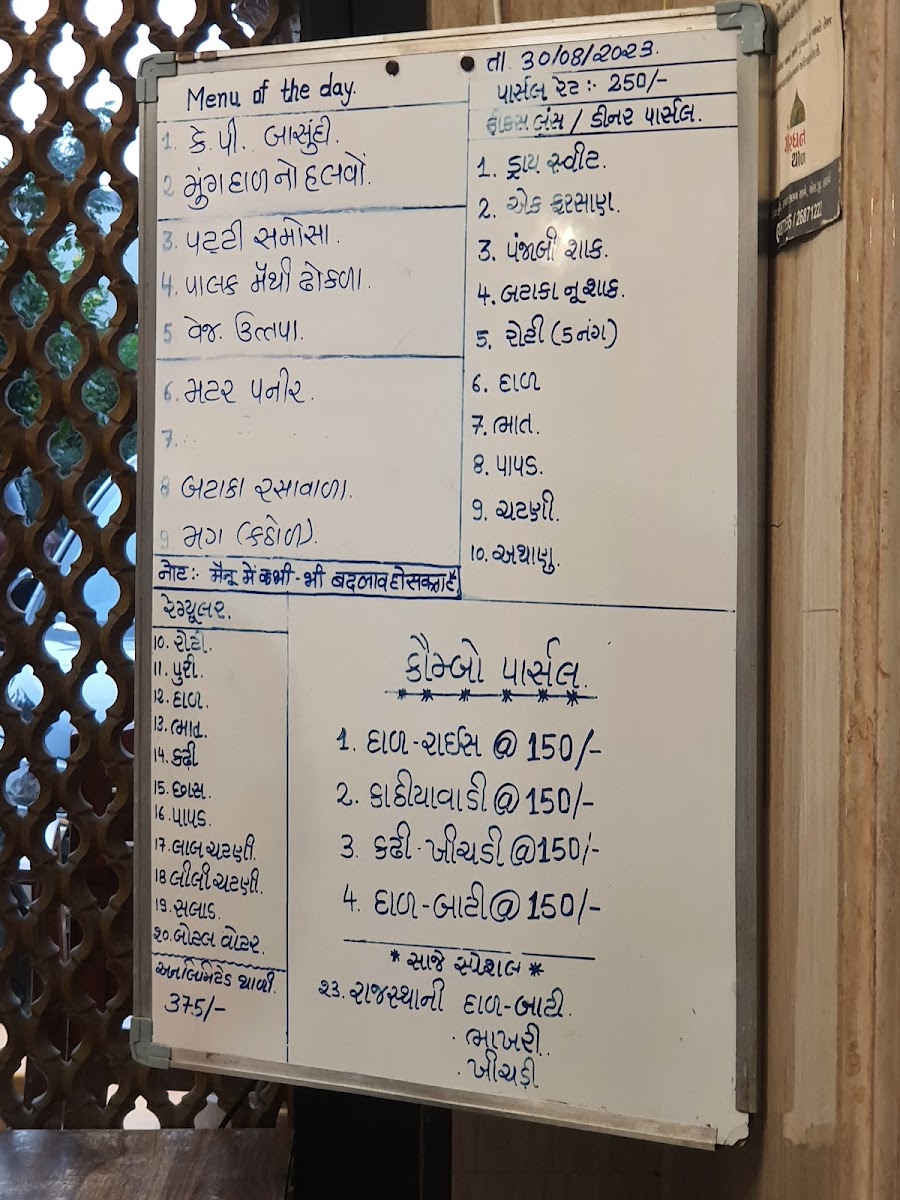 Menu of the day.
1. કે.પી. બાસુંદી.
2 મુંગદાળ નો હલવો.
3. પટ્ટી સમોસા.
4. પાલક મેથી ઢોકળા.
5 વેજ. ઉત્તપા.
6. મટર પનીર.
7.
8 બટાકા રસાવાળા.
9 મગ (કઠોળ).
નોટ:- મૈનૂ મેં કભી-ભી બદલાવ હો સકતા હૈ
રેગ્યૂલર.
10. રોટી.
11. પુરી
12. દાળ.
13. ભાત.
14. કઢી
15. છાસ.
16. પાપડ.
17. લાલ ચટણી.
18 લીલી ચટણી.
19. સલાડ.
૨૦. બોટલ વોટર.
અનલિમિટેડ થાળી.
375/-
તા 30/08/2023.
પાર્સલ રેટ:- 250/-
ફીકસ લંચ / ડીનર પાર્સલ.
1. ડ્રાય સ્વીટ.
2. એક ફરસાણ.
3. પંજાબી શાક.
4. બટાકા નૂ શાક.
5. રોટી (5 નંગ)
6. દાળ
7. ભાત.
8. પાપડ.
9. ચટણી.
10. અથાણુ.
કૌમ્બો પાર્સલ
1. દાળ-રાઈસ @ 150/-
2. કાઠીયાવાડી @ 150/-
3. કઢી-ખીચડી @ 150/-
4. દાળ-બાટી @ 150/-
* સાજે સ્પેશલ *
૨૩. રાજસ્થાની દાળ-બાટી.
. ભાખરી.
. ખીચડી
થાળ